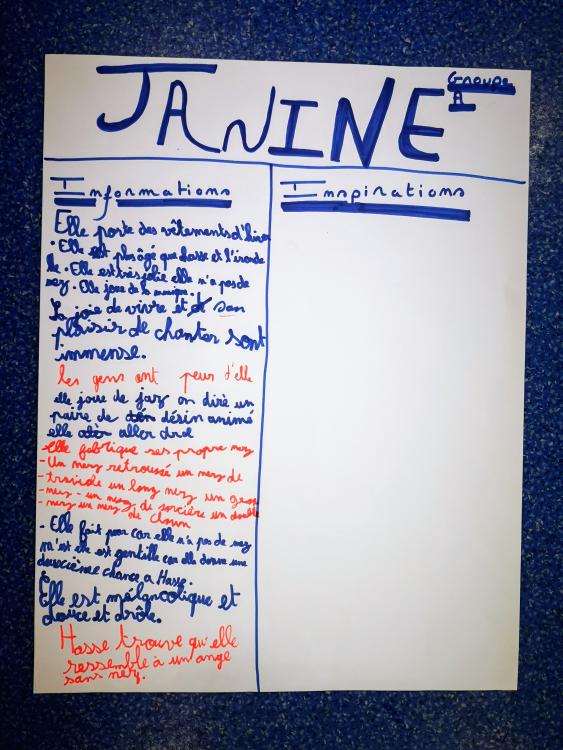 JANINE
Groupe
A
Informations
Elle porte des vêtements d'hiver
. Elle est plus âgé que Hasse et l'ironde
lle. Elle est très jolie elle n'a pas de
nez. Elle joue de la musique.
La joie de vivre et son
plaisir de chanter sont
immense.
les gens ont peur d'elle
elle joue de jaz on dirè un
paire de désin animé
elle aller drol
elle fabrique ses propre nez
- Un nez retroussé un nez de
- traviole un long nez un gros
- nez - un nez de sorcière un double
- nez un nez de clown
- Elle fait peur car elle n'a pas de nez
m'est elle est gentille car elle donne une
deuxcième chance a Hasse.
Elle est mélancolique et
douce et drôle.
Hasse trouve qu'elle
ressemble à un ange
sans nez.
Inspirations